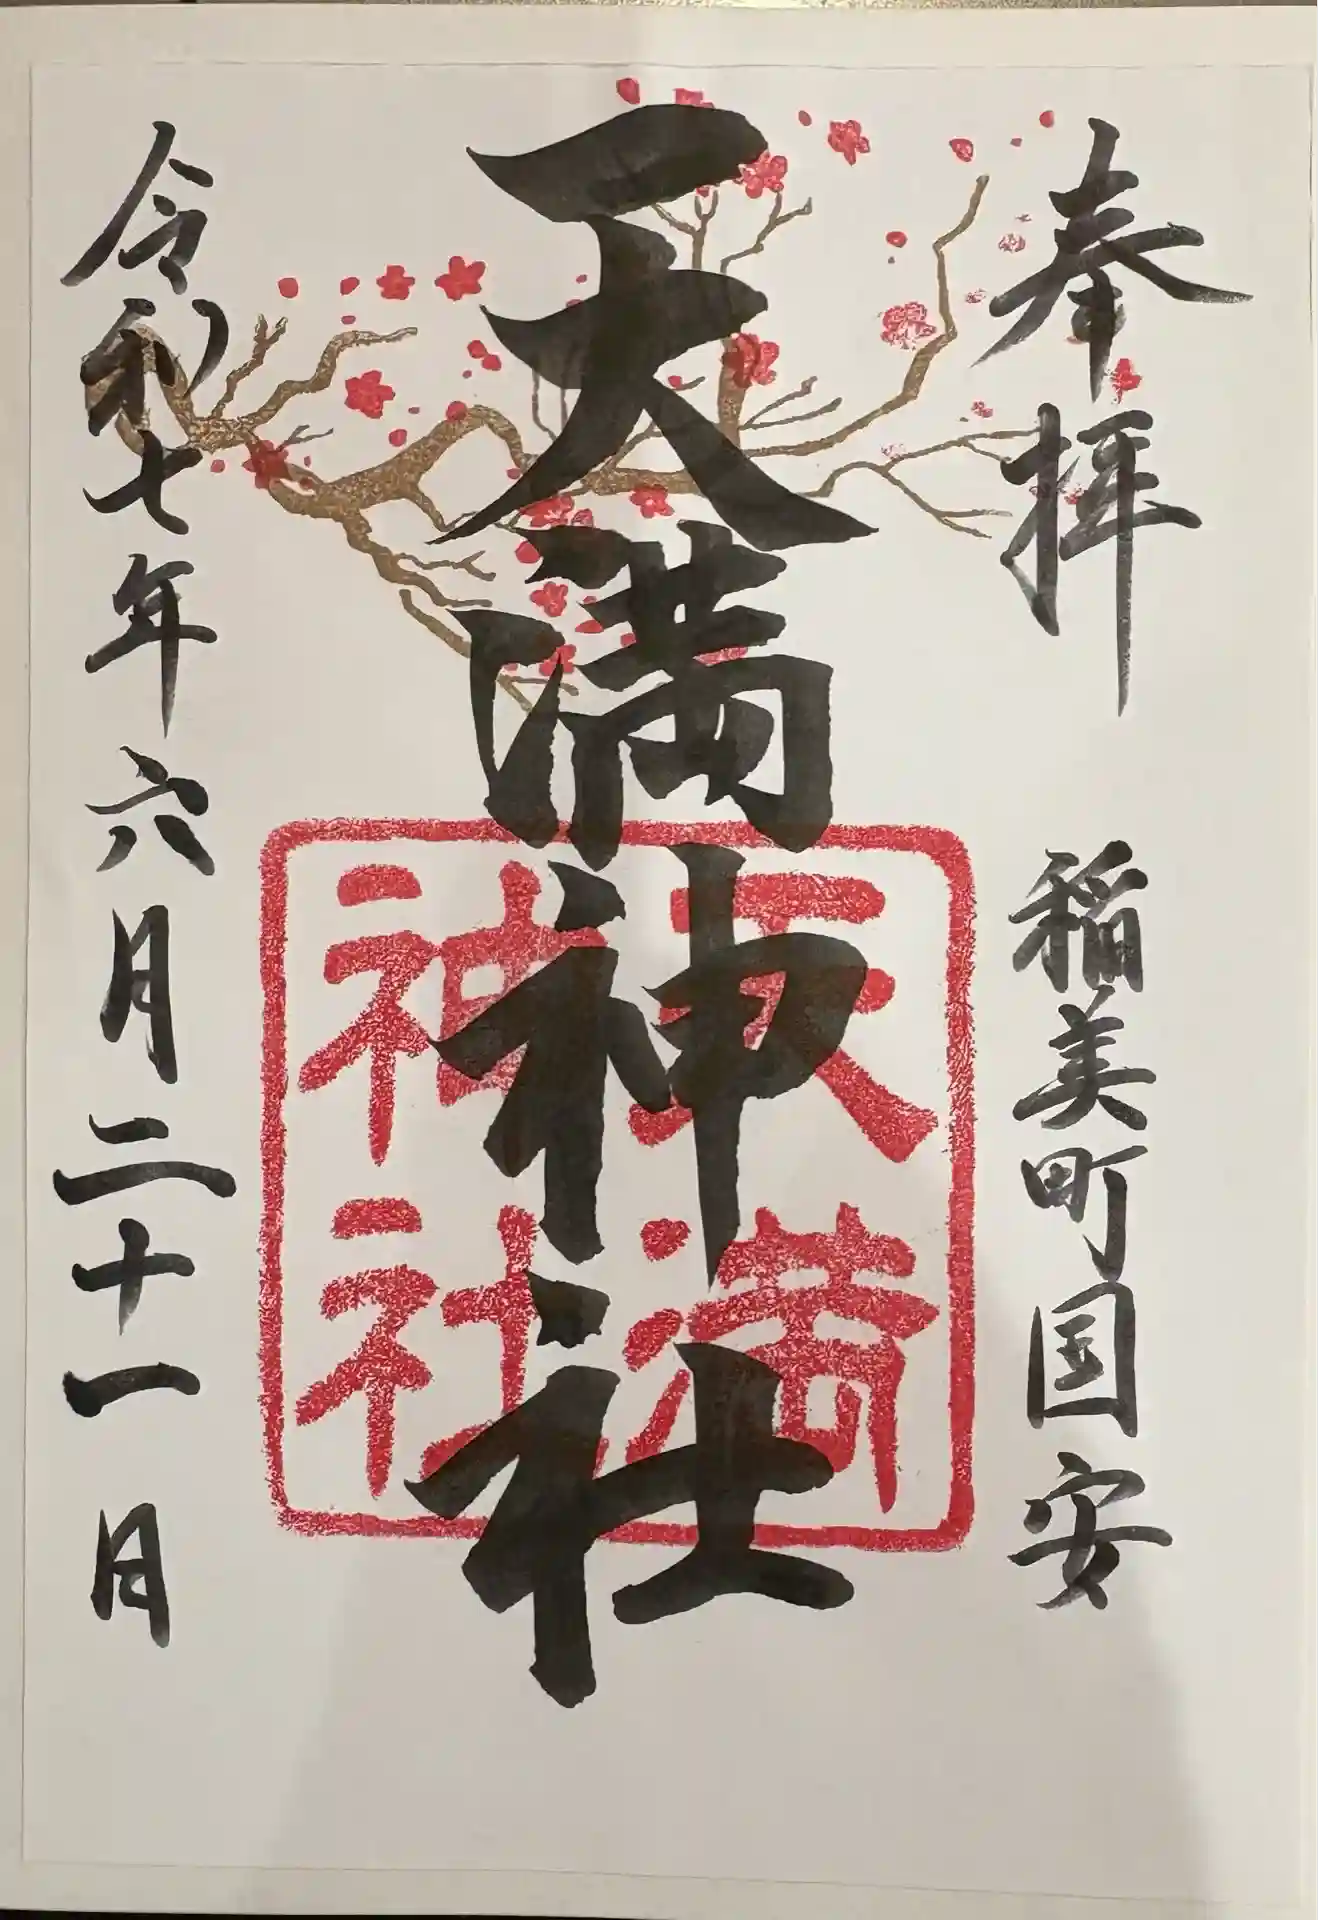 奉拝 稲美町国安
天満神社
天満
神社
令和七年六月二十一日